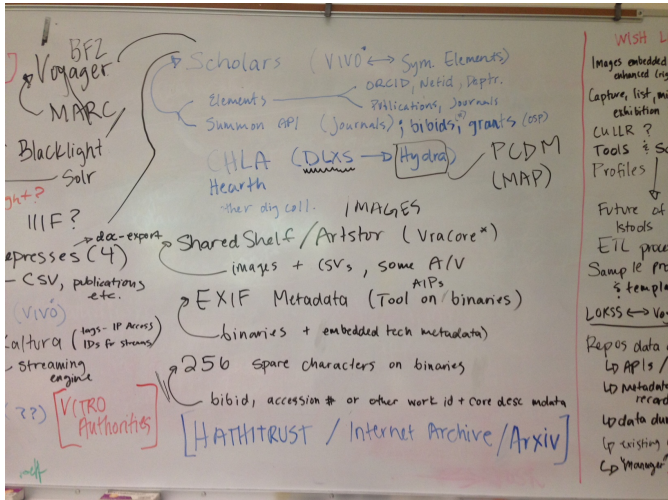 BF2
Voyager
MARC
Blacklight
Solr
ght?
IIIF?
→ doc-export
epresses (4)
- CSV, publications
etc.
(VIVO)
altura (tags - IP Access
IDs for streams)
- streaming
engine
(??)
[VITRO
Authorities]
Scholars (VIVO* ↔ Sym. Elements)
ORCID, Netid, Deptr.
Elements
Publications, Journals
Summon API (journals); bibids; grants (OSP)
CHLA (DLXS → Hydra)
PCDM
(MAP)
Hearth
other dig coll.
IMAGES
SharedShelf/Artstor (Vracore*)
images + CSVs, some A/V
AIPs
EXIF Metadata (Tool on binaries)
binaries + embedded tech metadata)
256 spare characters on binaries
bibid, accession # or other work id + core desc mdata
[HATHITRUST / Internet Archive / Arxiv]
WISH L
Images embedded
enhanced (rig
Capture, list, mi
exhibition
CULLR?
Tools & Sc
Profiles
Future of
lstools
ETL proce
Sample Pro
& templa
LOKSS ↔ Voy
Repos data
↳ APIs /
↳ Metadata
record
↳ data dum
↳ existing
↳ "manager"